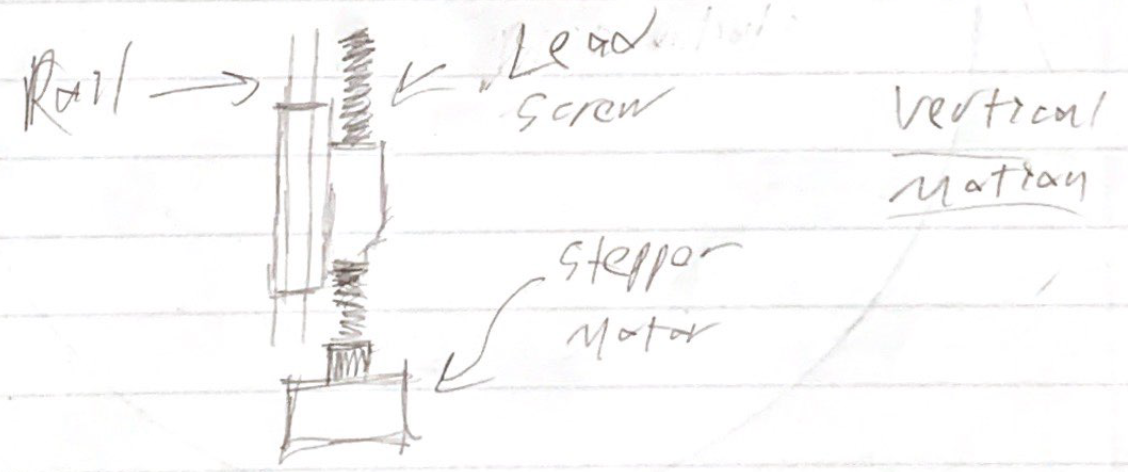 Rail
Lead
Screw
Vertical
Motion
Stepper
Motor